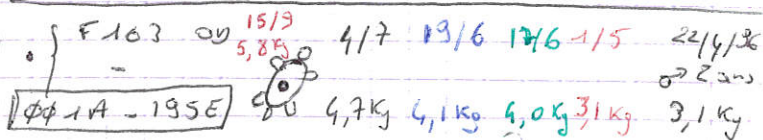 15/9
F103 OD 5,8Kg 4/7 19/6 17/6 1/5 22/4/96
- ♂ 2 ans
ΦΦ1A - 195E 4,7Kg 4,1Kg 4,0Kg 3,1Kg 3,1Kg